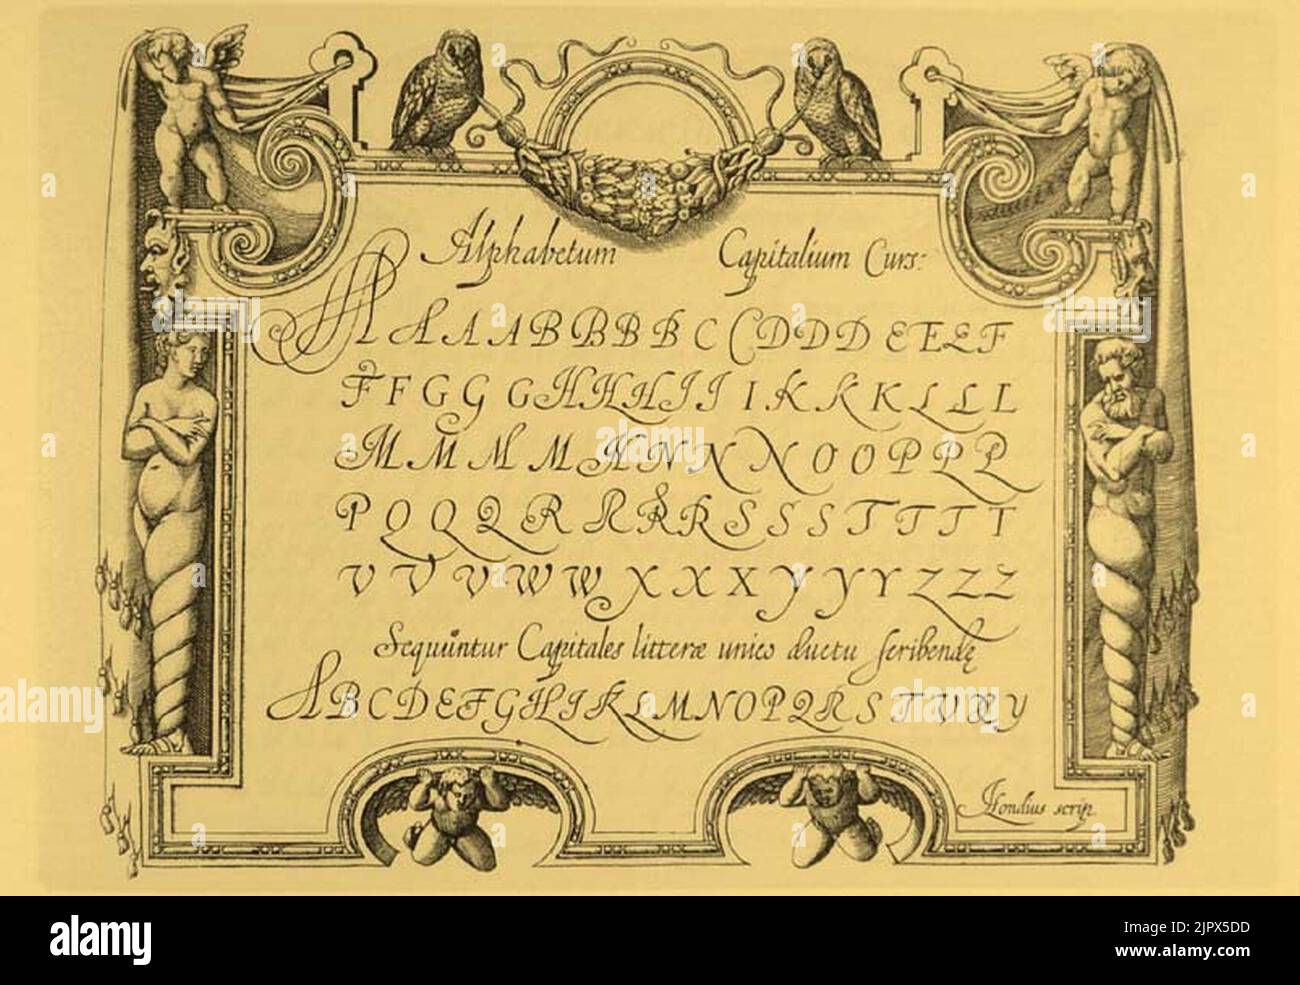 Alphabetum Capitalium Curs:
A A A A B B B B C C D D D E E E F
F F G G G H H H I I I K K K L L L
M M M M N N N N O O P P P
P Q Q Q R R R R S S S T T T T
V V V W W X X X Y Y Y Z Z Z
Sequũntur Capitales litteræ unico ductu scribendę
A B C D E F G H I K L M N O P Q R S T V X Y
Hondius scrip.
alamy
Image ID: 2JPX5DD
www.alamy.com